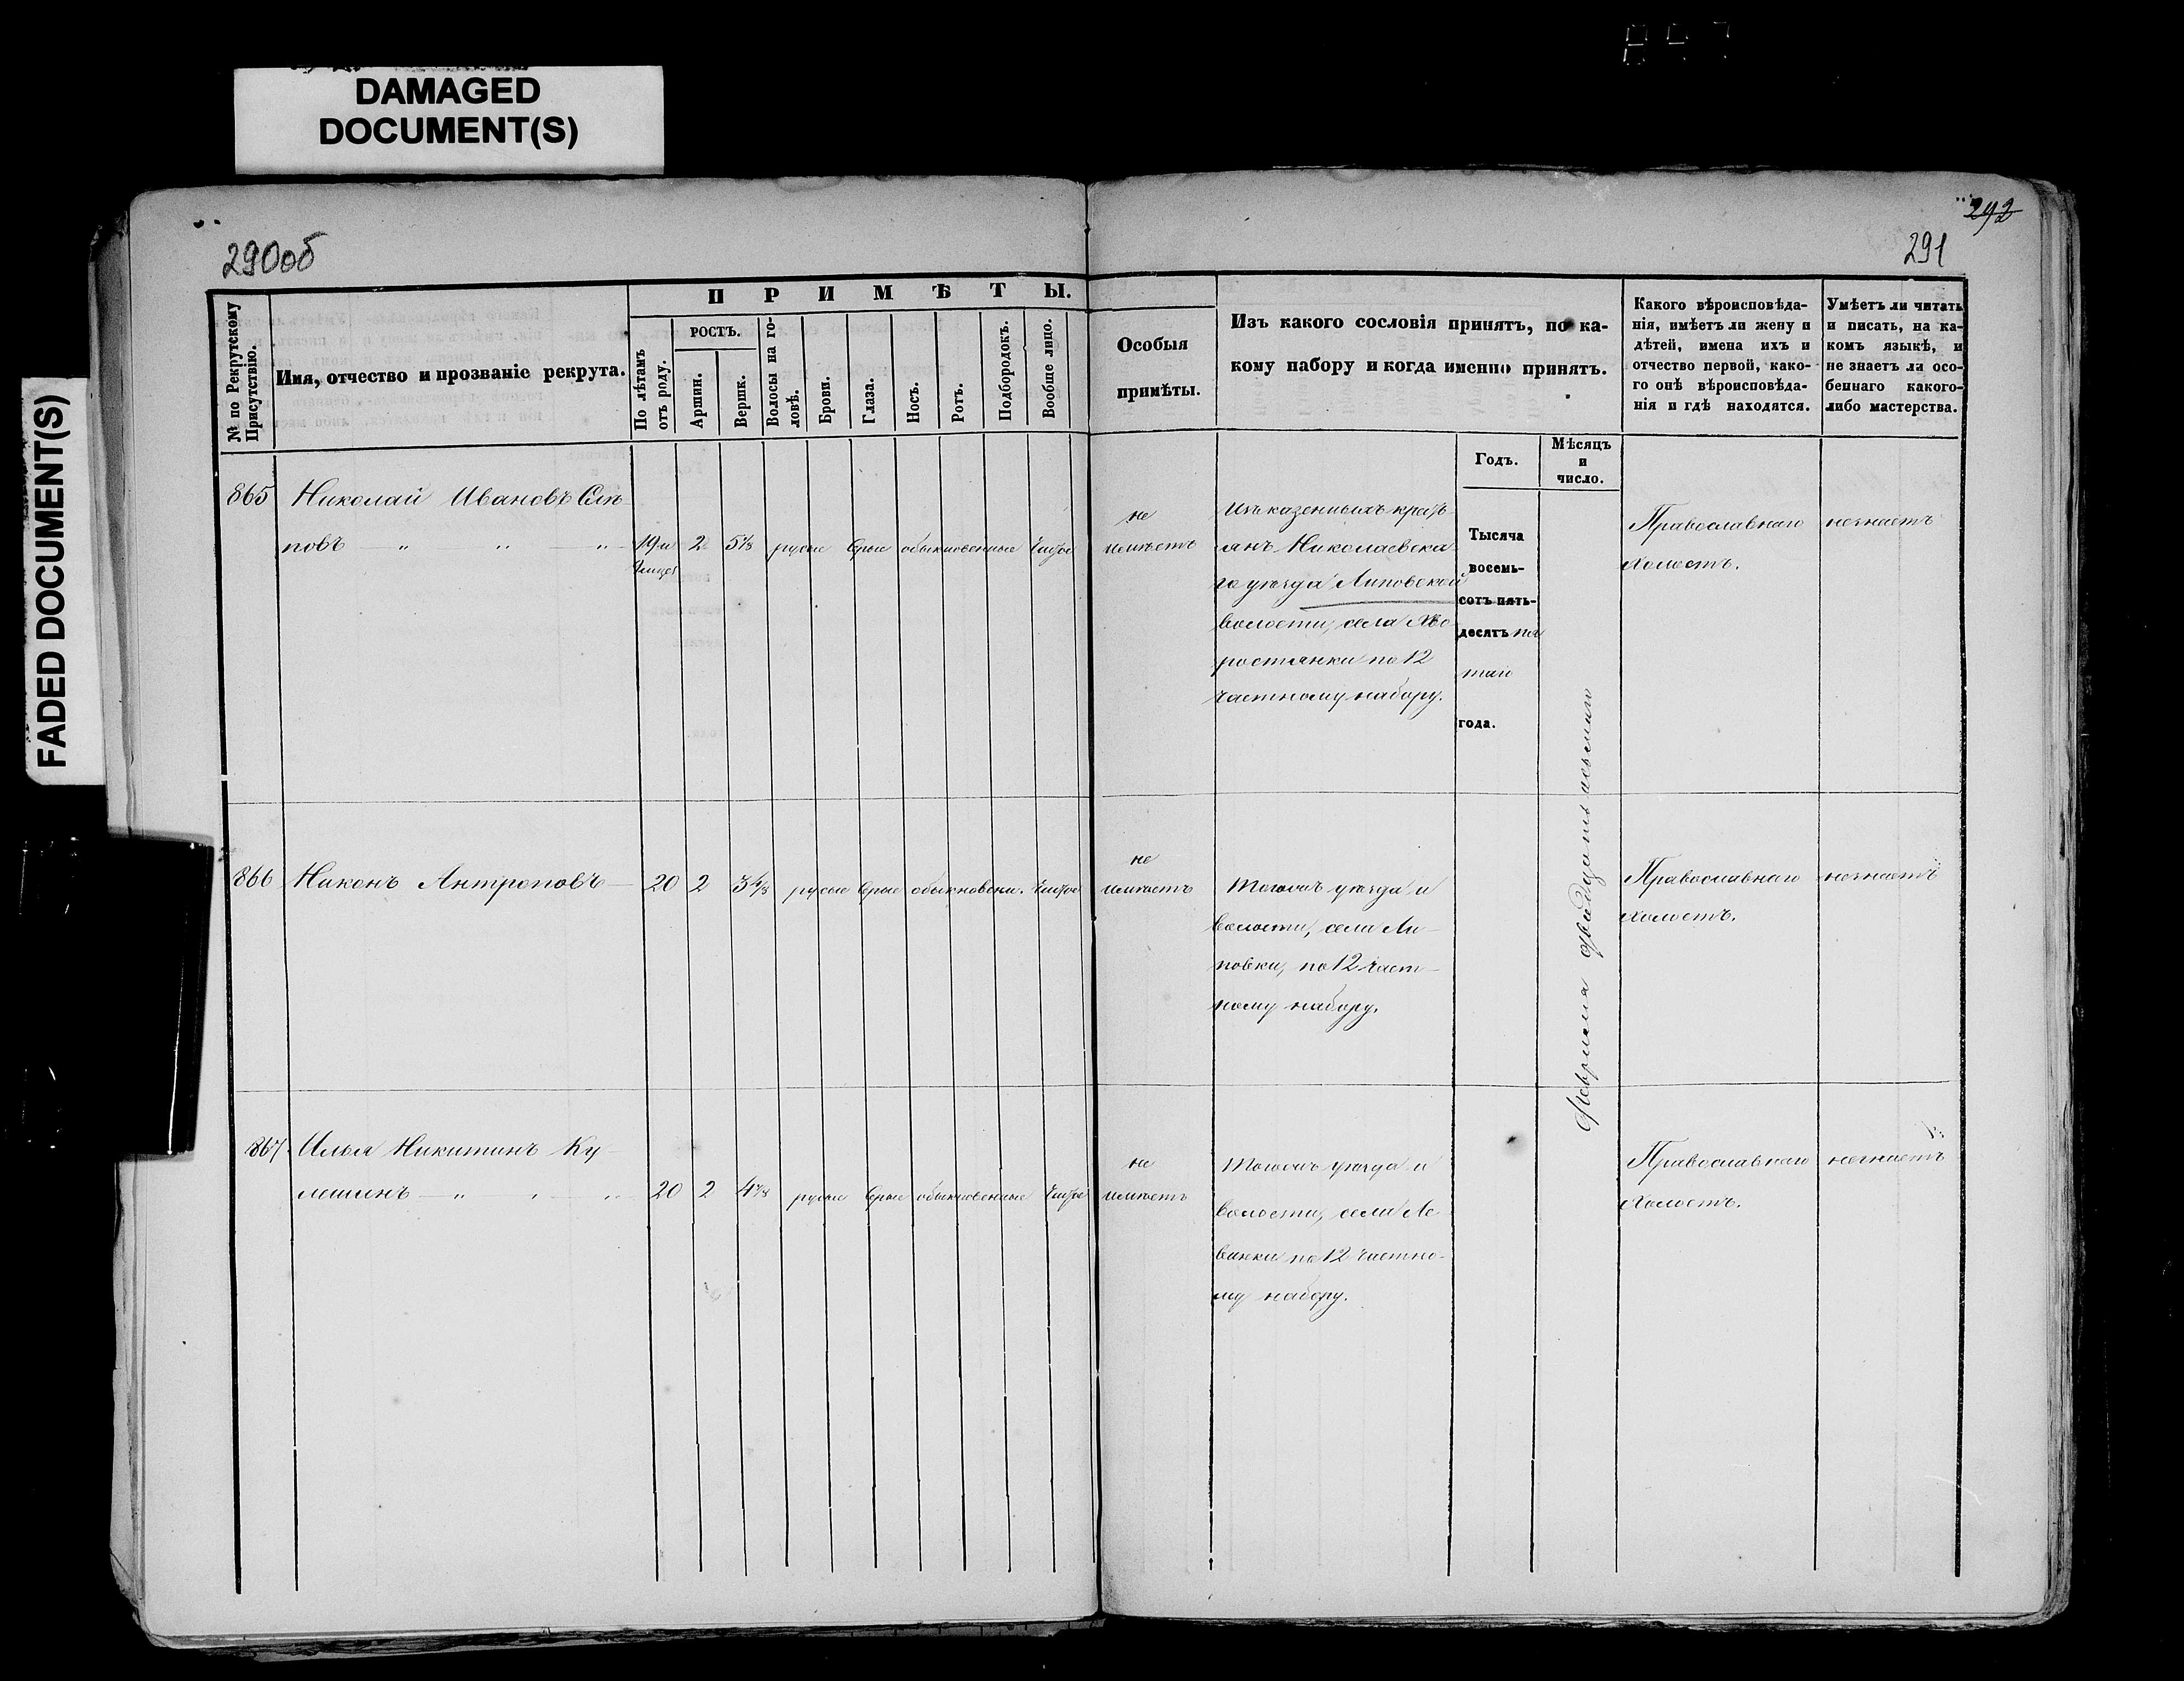 DAMAGED
DOCUMENT(S)
FADED DOCUMENT(S)
290об
292
291
№ по Рекрутскому
Присутствію.
Имя, отчество и прозваніе рекрута.
П Р И М Ѣ Т Ы.
По лѣтамъ
отъ роду.
РОСТЪ.
Аршин.
Вершк.
Волосы на го-
ловѣ.
Брови.
Глаза.
Носъ.
Ротъ.
Подбородокъ.
Вообще лицо.
Особыя
примѣты.
Изъ какого сословія принятъ, по ка-
кому набору и когда именно принятъ.
Годъ.
Мѣсяцъ
и
число.
Какого вѣроисповѣда-
нія, имѣетъ ли жену и
дѣтей, имена ихъ и
отчество первой, како-
го онѣ вѣроисповѣда-
нія и гдѣ находятся.
Умѣетъ ли читать
и писать, на ка-
комъ языкѣ, и
не знаетъ ли осо-
беннаго какого-
либо мастерства.
865
Николай Ивановъ
повъ — „ „ — „
19 и
2
5 1/8
русые
сѣрые
обыкновенные
чистое
не
имѣетъ
Изъ казенныхъ кресть
янъ Николаевска
го уѣзда Липовской
волости, села Хво
ростянки по 12
частному набору.
Тысяча
восемь-
сотъ пять-
десятъ пя
таго
года.
Февраля двадцать осьмаго
Православнаго
Холостъ.
незнаетъ
866
Никонъ Антроповъ —
20
2
3 4/8
русые
сѣрые
обыкновени.
чистое
не
имѣетъ
Тогожъ уѣзда и
волости, села Ли
повки, по 12 част
ному набору.
Православнаго
Холостъ.
незнаетъ
867.
Илья Никитинъ Ку
лешинъ — „ „ „
20
2
русые
сѣрые
обыкновенные
чистое
не
имѣетъ
Тогожъ уѣзда и
волости, села
по 12 частно
му набору.
Православнаго
Холостъ.
незнаетъ